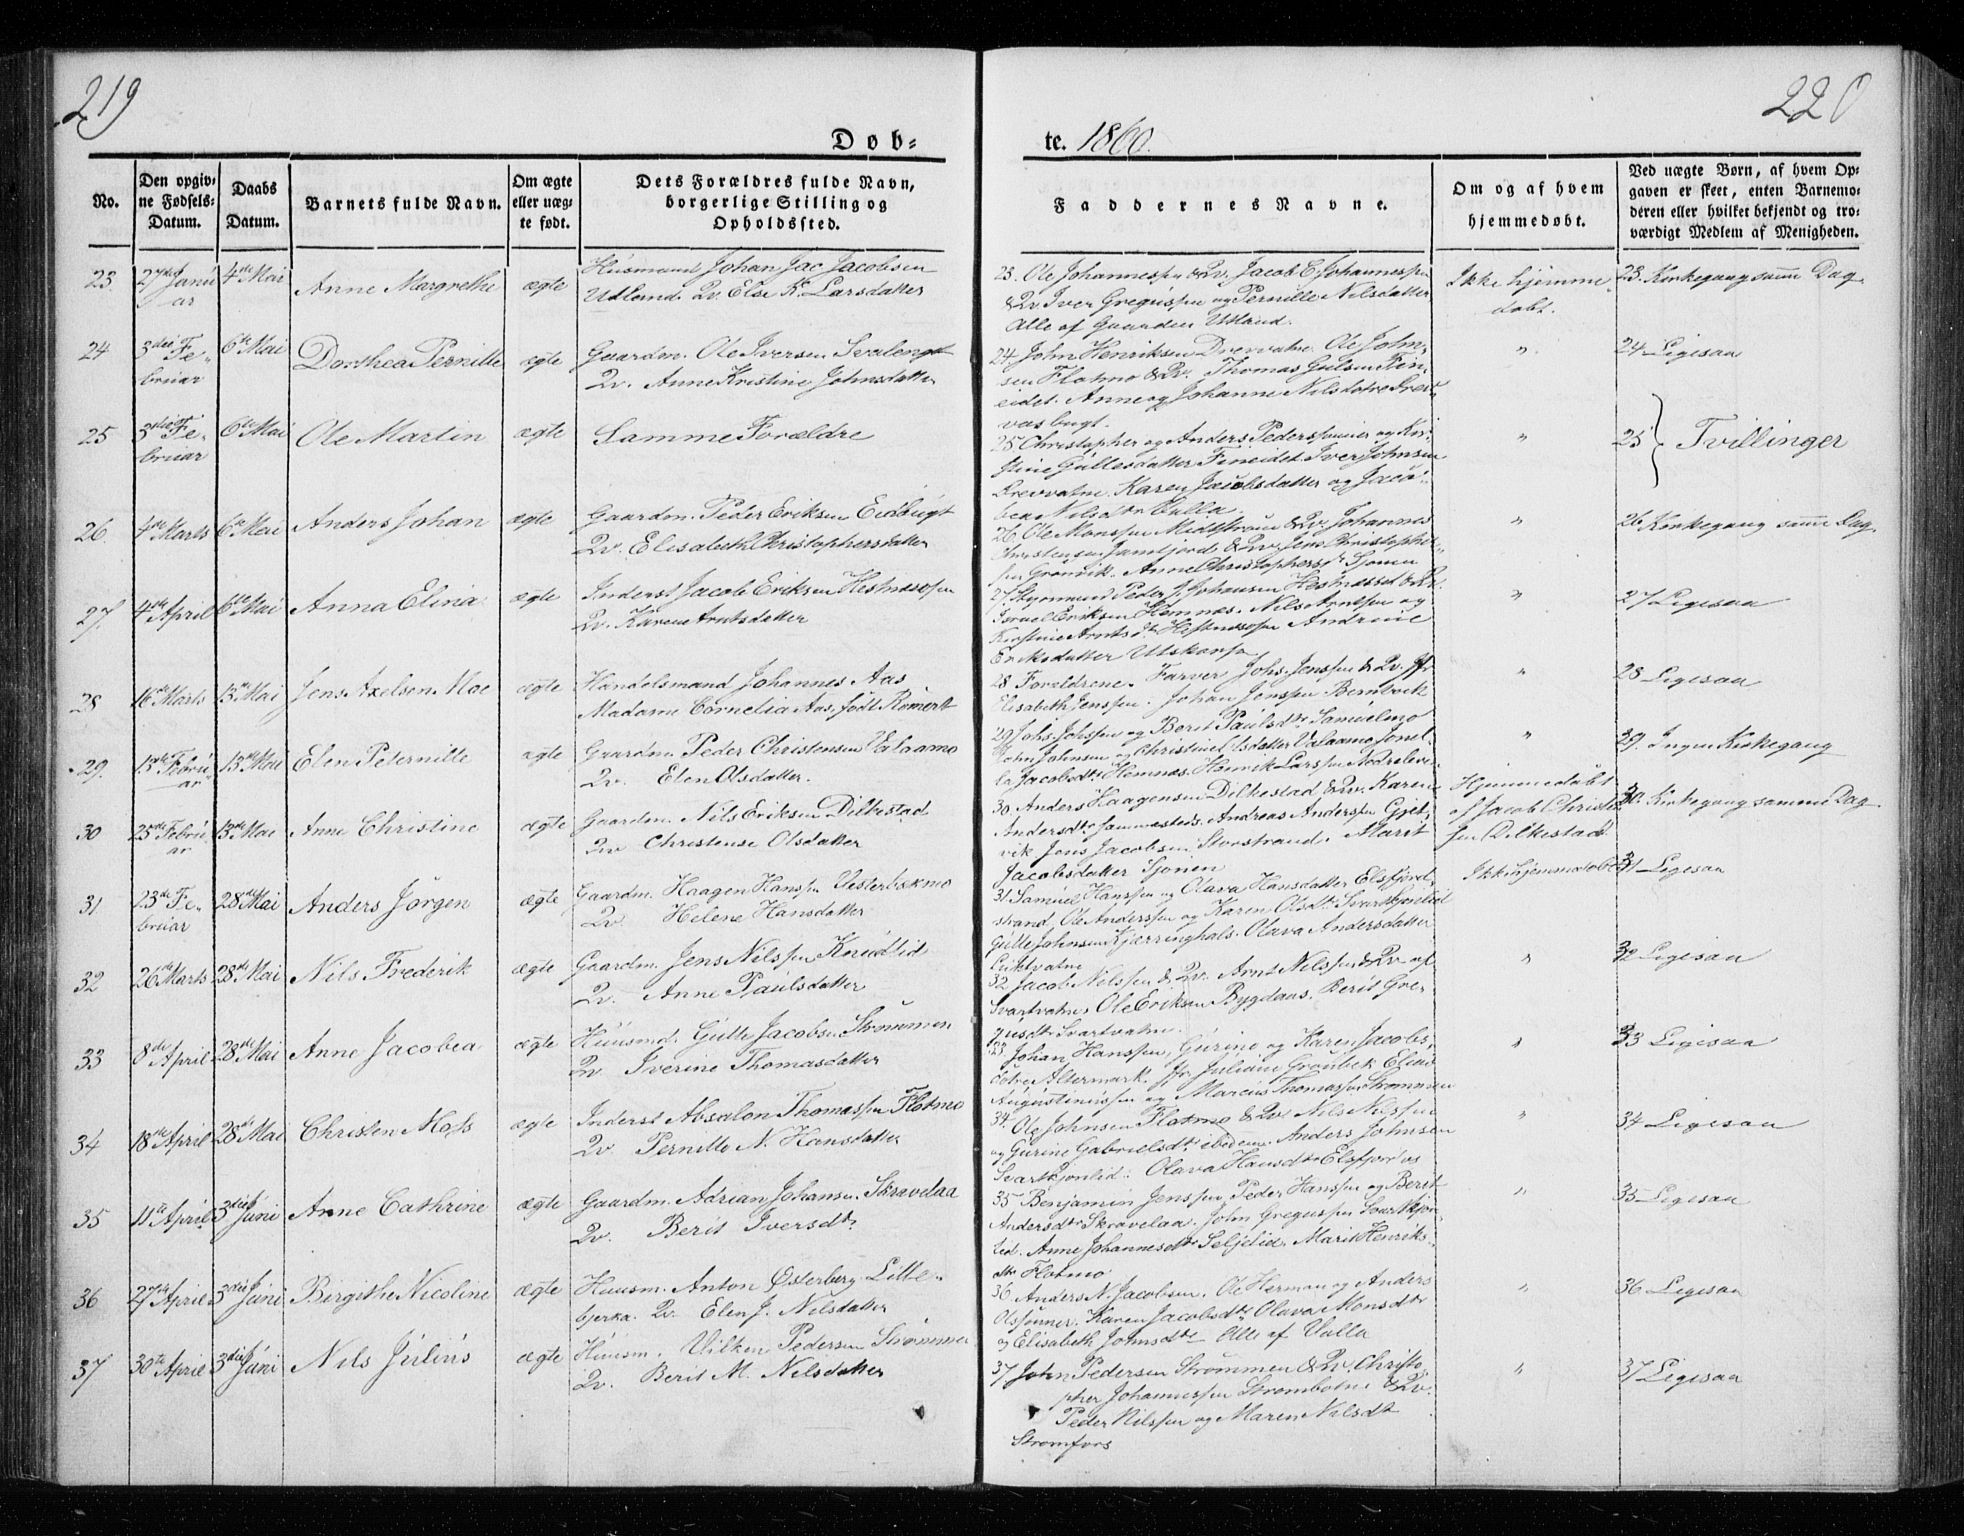 219
220
Døb-
te. 1860.
No.
Den opgiv-
ne Fødsels-
Datum.
Daabs
Datum.
Barnets fulde Navn.
Om ægte
eller uæg-
te født.
Dets Forældres fulde Navn,
borgerlige Stilling og
Opholdssted.
Faddernes Navne.
Om og af hvem
hjemmedøbt.
Ved uægte Børn, af hvem Op-
gaven er skeet, enten Barnemo-
deren eller hvilket bekjendt og tro-
værdigt Medlem af Menigheden.
23. 27de Janu 4de Mai Anne Margrethe ægte Huusmand Johan Jac Jacobsen
ar Utland. Qv. Else K. Larsdatter
23. Ole Johannessen & Qv. Jacob C. Johannessen
& Qv Iver Gregussen og Pernille Nilsdatter
Alle af Gaarden Utland.
Ikke hjemme-
døbt.
23. Kirkegang samme Dag.
24 3die Fe- 6te Mai Dorthea Pernille ægte Gaardm. Ole Iversen Svaleng
bruar Qv. Anne Kristine Johnsdatter
24 John Henriksen Drevvatne Ole John-
sen Flotmo & Qv. Thomas Gulsen Fin-
eidet. Anne og Johanne Nilsdøtre Brat-
" 24 Ligesaa
25 3die Fe- 6te Mai Ole Martin ægte Samme Forældre
bruar
25 Christopher og Anders Pederssønner og Kir-
stine Gullesdatter Fineidet. Iver Johnsen
Drevvatne. Karen Jacobsdatter og Jaco-
bea Nilsdtr Valla.
" 25 } Tvillinger
26 4de Marts 6te Mai Anders Johan ægte Gaardm. Peder Eriksen Eidbugt
Qv. Elisabeth Christophersdatter
26. Ole Monssen Midtstraum & Qv. Johannes
Christensen Jamtjord & Qv. Jens Christopher-
sen Grønvik. Anne Christophersdtr Sjonen
" 26 Kirkegang samme Dag.
27. 4de April 6te Mai Anna Elina ægte Inderst Jacob Eriksen Hestnesøen
Qv. Karen Arntsdatter
27 Styrmand Peder J. Johansen Hestnesset & Qv.
Israel Eriksen Hemnæs. Nils Arntsen og
Kirstine Arntsdtr Hestnesøen Andrine
Eriksdatter Utskarpen
" 27 Ligesaa
28 16de Marts 13de Mai Jens Axelsen Moe ægte Handelsmand Johannes Aas
Madame Cornelia Aas, født Römert
28 Forældrene. Farver Johs. Jenssen & Qv. Jfr
Elisabeth Jenssen. Johan Jenssen Bernbvik
" 28 Ligesaa
29. 13de Febru 13de Mai Elen Peternille ægte Gaardm. Peder Christensen Valaamo
ar Qv. Elen Olsdatter.
29 Johs. Johssen og Berit Paulsdtr Samuelmo
John Johnsen og Christine Olsdatter Valaamo Jonel-
la Jacobsdtr Hemnæs. Henrik Larssen
" 29. Ingen Kirkegang
30 25de Febru 13de Mai Anne Christine ægte Gaardm. Nils Eriksen Dilkestad
ar Qv. Christense Olsdatter
30 Anders Haagensen Dilkestad & Qv. Karen
Andersdtr sammesteds. Andreas Anderssen Gjet-
vik Jens Jacobsen Storstrand. Marit
Jacobsdatter Sjonen
Hjemmedøbt
af Jacob Christen-
sen Dilkestad
30. Kirkegang samme Dag
31 23de Fe- 28de Mai Anders Jørgen ægte Gaardm. Haagen Hanssen Vesterbækmo
bruar Qv. Helene Hansdatter
31 Samuel Hanssen og Olava Hansdatter Elsfjord-
strand. Ole Anderssen og Karen Olsdtr Svartkjønlid
Gulle Johnsen Kjærringhals. Olava Andersdatter
Luktvatne
Ikke hjemmedøbt 31 Ligesaa
32 26de Marts 28de Mai Nils Frederik ægte Gaardm. Jens Nilssen Knudtlid
Qv. Anne Paulsdatter
32 Jacob Nilssen & Qv. Arnt Nilssen & Qv. af
Svartvatne. Ole Eriksen Bygdaas. Berit Gre-
gusdtr Svartvatne.
" 32 Ligesaa
33 8de April 28de Mai Anne Jacobea ægte Huusmd. Gulle Jacobsen Strømmen
Qv. Iverine Thomasdatter
33 Johan Hanssen, Gurine og Karen Jacobs-
døtre Altermark. Jfr Juliane Grønbek Elias
Augustinussen og Marcus Thomassen Strømmen
" 33 Ligesaa
34 18de April 28de Mai Christen Moss ægte Inderst Absalon Thomassen Flotmo
Qv Pernille N. Hansdatter
34. Ole Johnsen Flotmo & Qv. Nils Nilssen
og Gurine Gabrielsdtr ibidem. Anders Johnsen
Svartkjønlid. Olava Hansdtr Elsfjord
" 34 Ligesaa
35 11te April 3die Juni Anne Cathrine ægte Gaardm. Adrian Johansen Skravelaa
Qv. Berit Iversdtr
35 Benjamin Jenssen, Peder Hanssen og Berit
Andersdtr Skravelaa. John Gregussen Svartkjøn-
lid. Anne Johannesdtr Seljelid. Marit Henriks-
dtr Flotmo
" 35 Ligesaa
36 27de April 3die Juni Birgithe Nicoline ægte Huusm. Anton Østerberg Lille-
bjerka. Qv. Elen J. Nilsdatter
36 Anders N. Jacobsen. Ole Herman og Anders
Olssønner. Karen Jacobsdtr Olava Monsdtr
og Elisabeth Johnsdtr Alle af Valla
" 36 Ligesaa
37 30te April 3die Juni Nils Julius ægte Huusm. Vilken Pedersen Strømmen
Qv. Berit M. Nilsdatter
37 John Pedersen Strømmen & Qv. Christo-
pher Johannessen Strømbotn & Qv.
Peder Nilssen og Maren Nilsdtr
Strømfors
" 37 Ligesaa